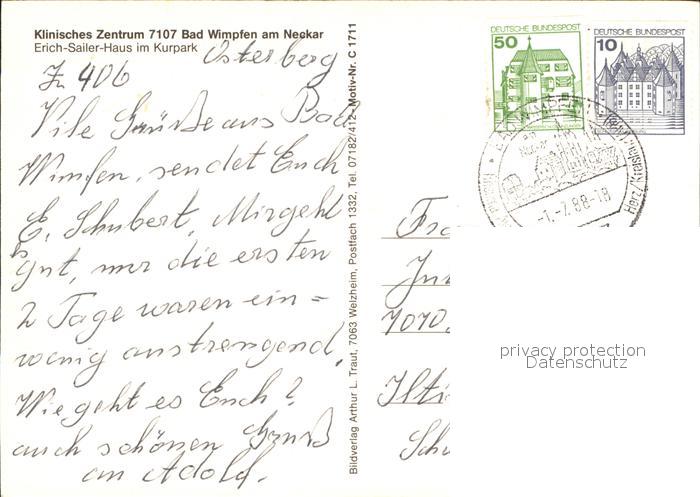 Klinisches Zentrum 7107 Bad Wimpfen am Neckar
Erich-Sailer-Haus im Kurpark
Osterberg
Zr 406
Vile Grüße aus Bad
Wimfen, sendet Euch
E. Schubert, Mirgeht
es gut, nur die ersten
2 Tage waren ein =
wenig anstrengend,
Wie geht es Euch?
auch schönen Gruß
an Adold.
Bildverlag Arthur L. Traut, 7063 Welzheim, Postfach 1332, Tel. 07182/412 Motiv-Nr. C 1711
DEUTSCHE BUNDESPOST
50
DEUTSCHE BUNDESPOST
10
BAD WIMPFEN
-1.-7.88-18
Herz/Kreislauf
7070,
privacy protection
Datenschutz